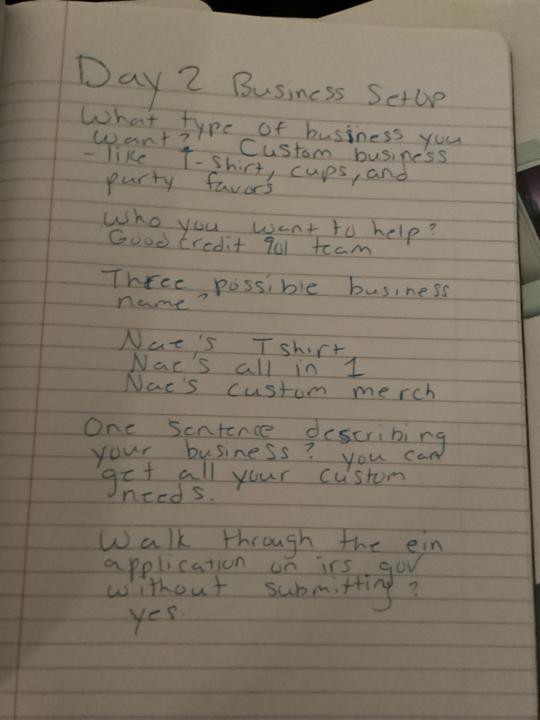 Day 2 Business SetUp
What type of business you
want? Custom business
- like T-shirt, cups, and
party favors
Who you want to help?
Good credit 901 team
Three possible business
name?
Nae's Tshirt
Nae's all in 1
Nae's custom merch
One sentence describing
your business? you can
get all your custom
needs.
Walk through the ein
application on irs gov
without submitting?
yes.